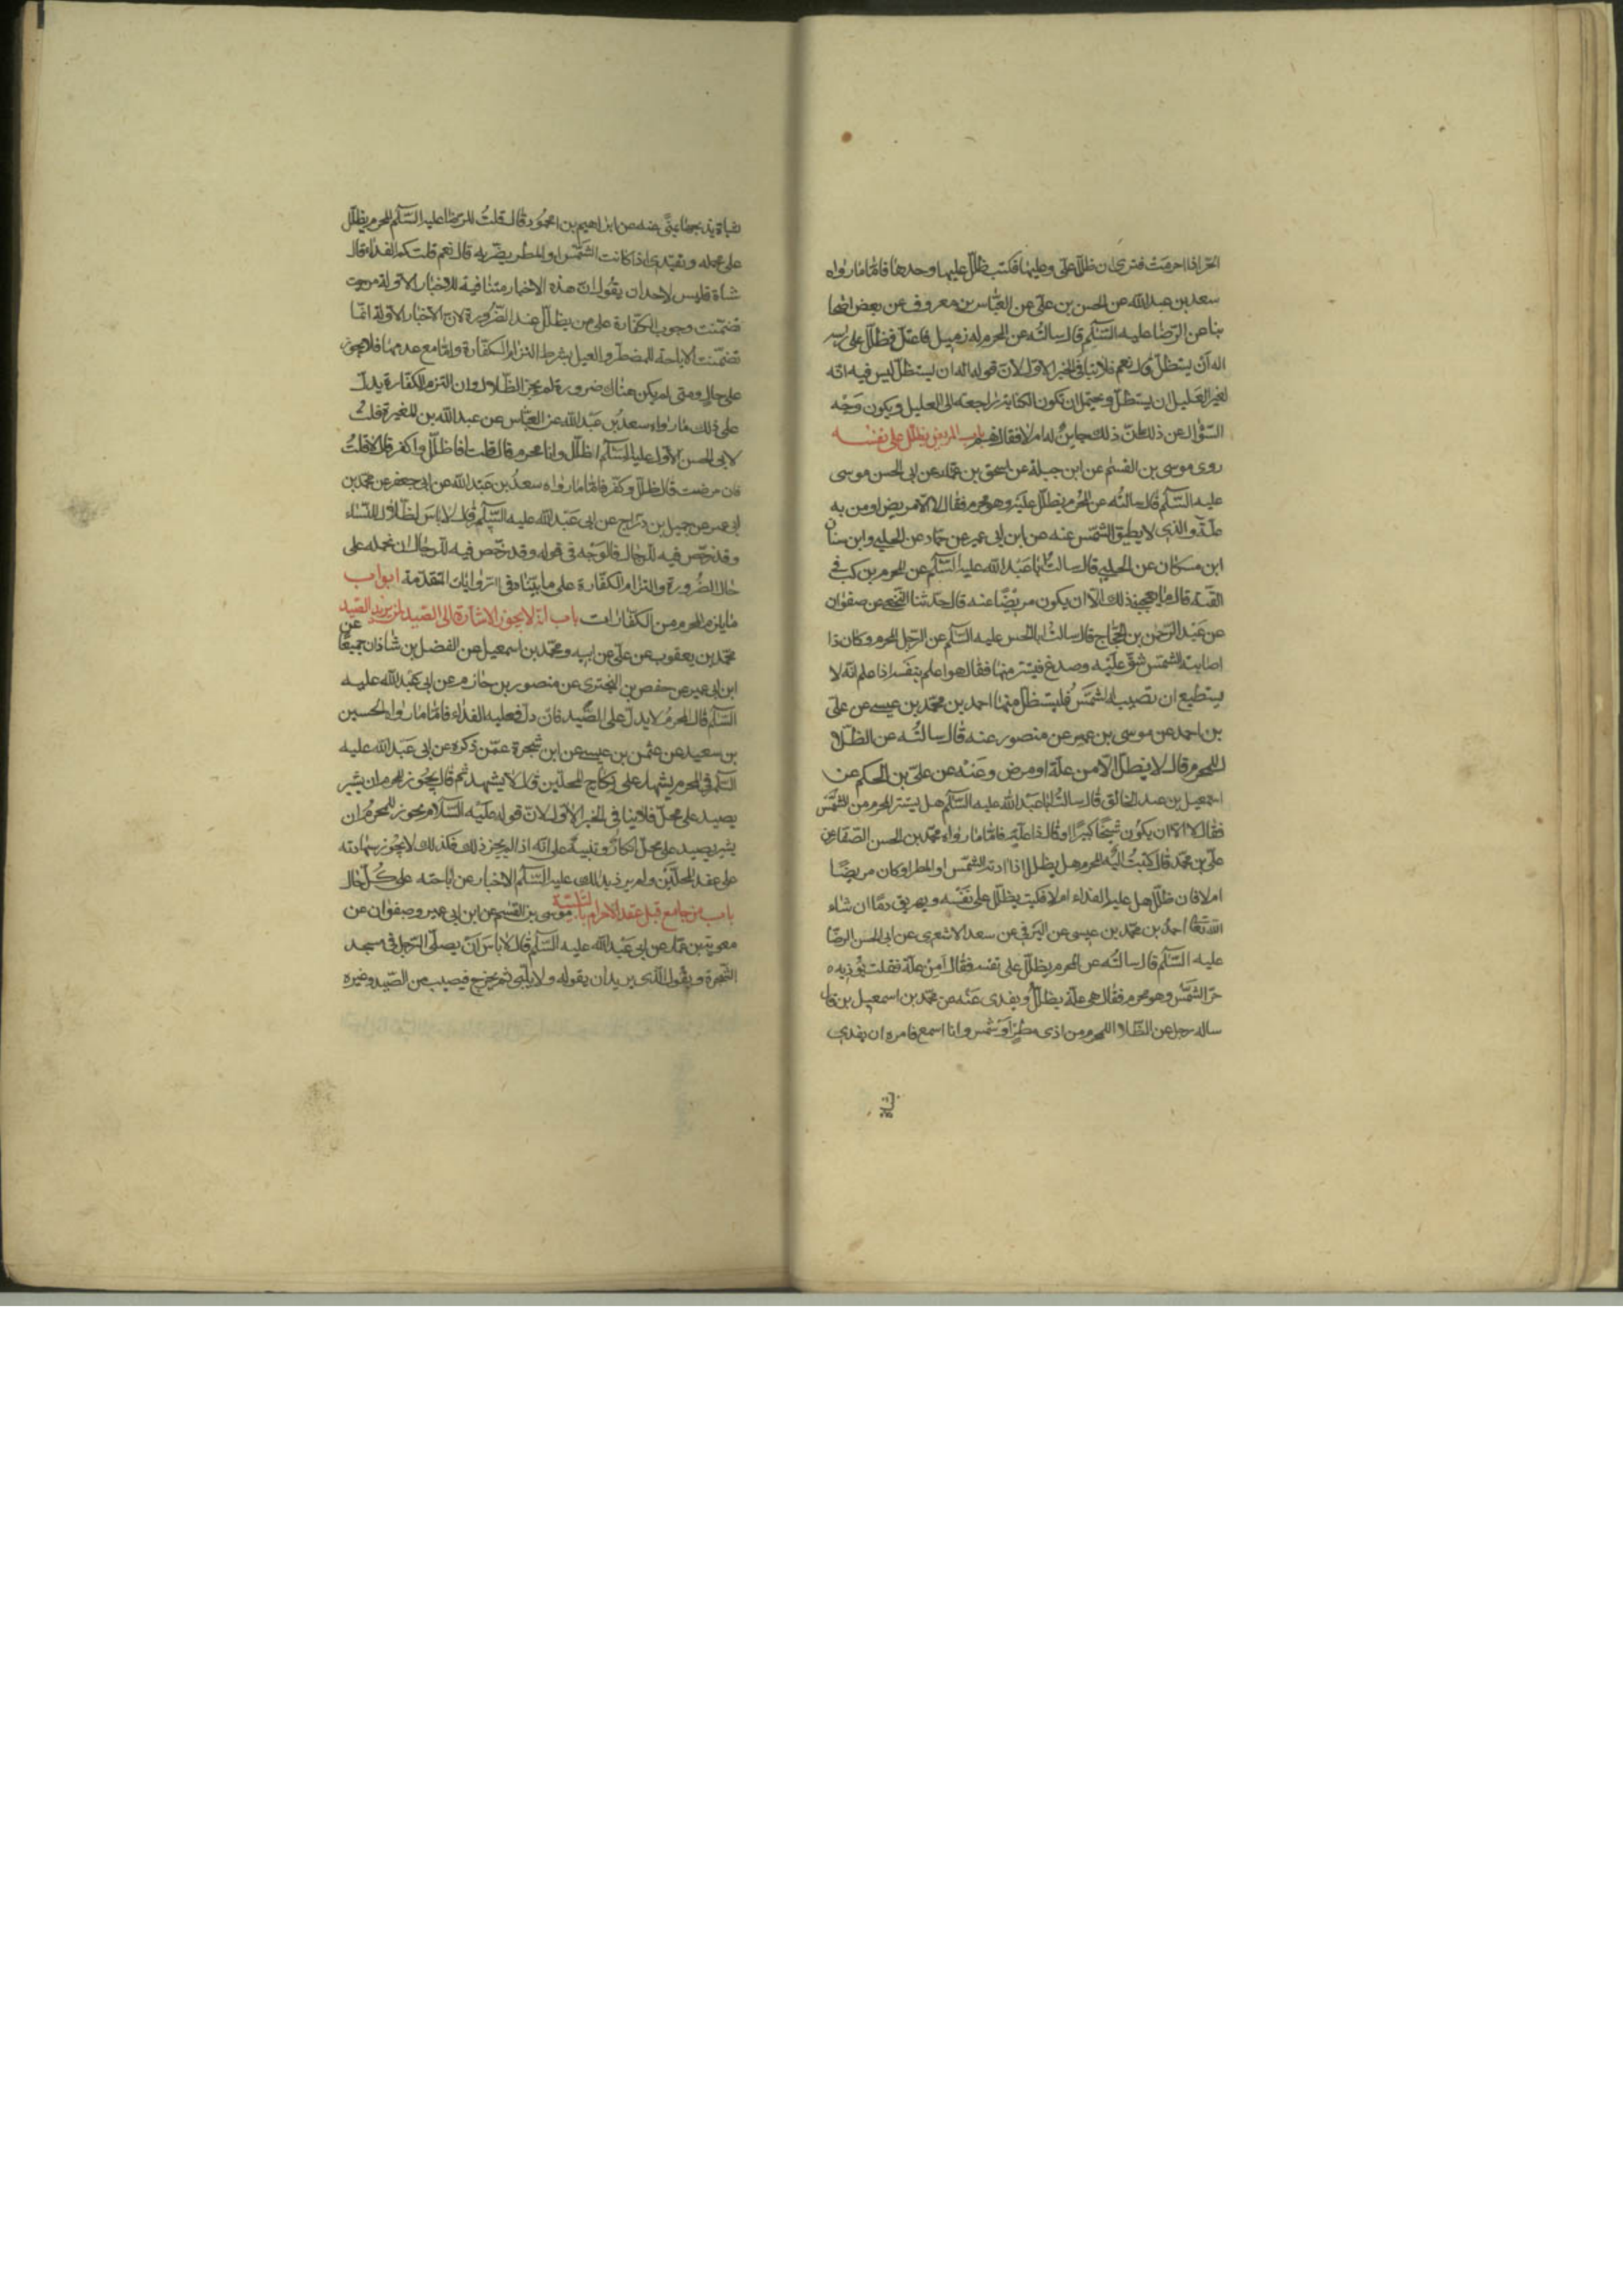 الحر اذا احرمت فترى ان ظلل على وعليها فكتب ظلل عليها وحدها فاما ما رواه
سعد بن عبدالله عن الحسن بن على عن العباس بن معروف عن بعض اصحا
بنا عن الرضا عليه السلم قال سالته عن المحرم له زميل فاعتل فظلل على راسه
اله ان يستظل قال نعم فلا ينافى الخبر الاول لان قوله اله ان يستظل ليس فيه انه
لغير العليل ان يستظل ويحتمل ان تكون الكناية راجعة الى العليل ويكون وجه
السؤال عن ذلك ذلك جايز له ام لا فقال نعم باب المريض يظلل على نفسه
روى موسى بن القسم عن ابن جبلة عن اسحق بن عمار عن ابى الحسن موسى
عليه السلم قال سالته عن المحرم يظلل عليه وهو محرم فقال لا الا مريض او من به
علة والذى لا يطيق الشمس عنه عن ابن ابى عمير عن حماد عن الحلبى وابن سنان
ابن مسكان عن الحلبى قال سالت ابا عبدالله عليه السلم عن المحرم يركب فى
القبة قال ما يعجبنى ذلك الا ان يكون مريضا عنه قال حدثنا النخعى عن صفوان
عن عبد الرحمن بن الحجاج قال سالت ابا الحسن عليه السلم عن الرجل المحرم وكان اذا
اصابته الشمس شق عليه وصدع فيستر منها فقال هو اعلم بنفسه اذا علم انه لا
يستطيع ان تصيبه الشمس فليستظل منها احمد بن محمد بن عيسى عن على
بن احمد عن موسى بن عمير عن منصور عنه قال سالته عن الظلال
للمحرم قال لا يظلل الا من علة او مرض وعنه عن على بن الحكم عن
اسمعيل بن عبد الخالق قال سالت ابا عبدالله عليه السلم هل يستتر المحرم من الشمس
فقال لا الا ان يكون شيخا كبيرا او قال ذا علة فاما ما رواه محمد بن الحسن الصفار عن
على بن محمد قال كتبت اليه المحرم هل يظلل اذا اذته الشمس او المطر او كان مريضا
ام لا فان ظلل هل عليه الفداء ام لا فكتب يظلل على نفسه ويهريق دما ان شاء
الله تعالى احمد بن محمد بن عيسى عن البرقى عن سعد الاشعرى عن ابى الحسن الرضا
عليه السلم قال سالته عن المحرم يظلل على نفسه فقال أمن علة فقلت يؤذيه
حر الشمس وهو محرم فقال هى علة يظلل ويفدى عنه عن محمد بن اسمعيل بن قال
ساله رجل عن الظلال للمحرم من اذى مطر او شمس وانا اسمع فامره ان يفدى
بشاة
بشاة يذبحها بمنى عنه عن ابراهيم بن ابى محمود قال قلت للرضا عليه السلم المحرم يظلل
على محمله ويفتدى اذا كانت الشمس او المطر يضر به قال نعم قلت كم الفداء قال
شاة فليس لاحد ان يقول ان هذه الاخبار متنافية للاخبار الاولة من حيث
تضمنت وجوب الكفارة على من يظلل عند الضرورة لان الاخبار الاولة انما
تضمنت الاباحة للمضطر والعليل بشرط التزام الكفارة واما مع عدمها فلا يجوز
على حال ومتى لم يكن هناك ضرورة لم يجز الظلال وان التزم الكفارة يدل
على ذلك ما رواه سعد بن عبدالله عن العباس عن عبدالله بن المغيرة قلت
لابى الحسن الاول عليه السلم اظلل وانا محرم قال قلت افاظلل واكفر قال لا قلت
فان مرضت قال ظلل وكفر فاما ما رواه سعد بن عبدالله عن ابى جعفر عن محمد بن
ابى عمير عن جميل بن دراج عن ابى عبدالله عليه السلم قال لا باس بالظلال للنساء
وقد رخص فيه للرجال فالوجه فى قوله وقد رخص فيه للرجال ان نحمله على
حال الضرورة والتزام الكفارة على ما بيناه فى الروايات المتقدمة ابواب
ما يلزم المحرم من الكفارات باب انه لا يجوز الاشارة الى الصيد لمن يريد الصيد
محمد بن يعقوب عن على عن ابيه ومحمد بن اسمعيل عن الفضل بن شاذان جميعا عن
ابن ابى عمير عن حفص بن البخترى عن منصور بن حازم عن ابى عبدالله عليه
السلم قال المحرم لا يدل على الصيد فان دل فعليه الفداء فاما ما رواه الحسين
بن سعيد عن عثمن بن عيسى عن ابن شجرة عمن ذكره عن ابى عبدالله عليه
السلم فى المحرم يشهد على نكاح المحلين قال لا يشهد ثم قال يجوز للمحرم ان يشير
بصيد على محل فلا ينافى الخبر الاول لان قوله عليه السلام يجوز للمحرم ان
يشير بصيد على محل انكار وتنبيه على انه اذا لم يجز ذلك فكذلك لا يجوز شهادته
على عقد المحلين ولم يرد بذلك عليه السلم الاخبار عن اباحته على كل حال
باب من جامع قبل عقد الاحرام بالتلبية موسى بن القسم عن ابن ابى عمير وصفوان عن
معوية بن عمار عن ابى عبدالله عليه السلم قال لا باس ان يصلى الرجل فى مسجد
الشجرة ويقول الذى يريد ان يقوله ولا يلبى ثم يخرج فيصيب من الصيد وغيره